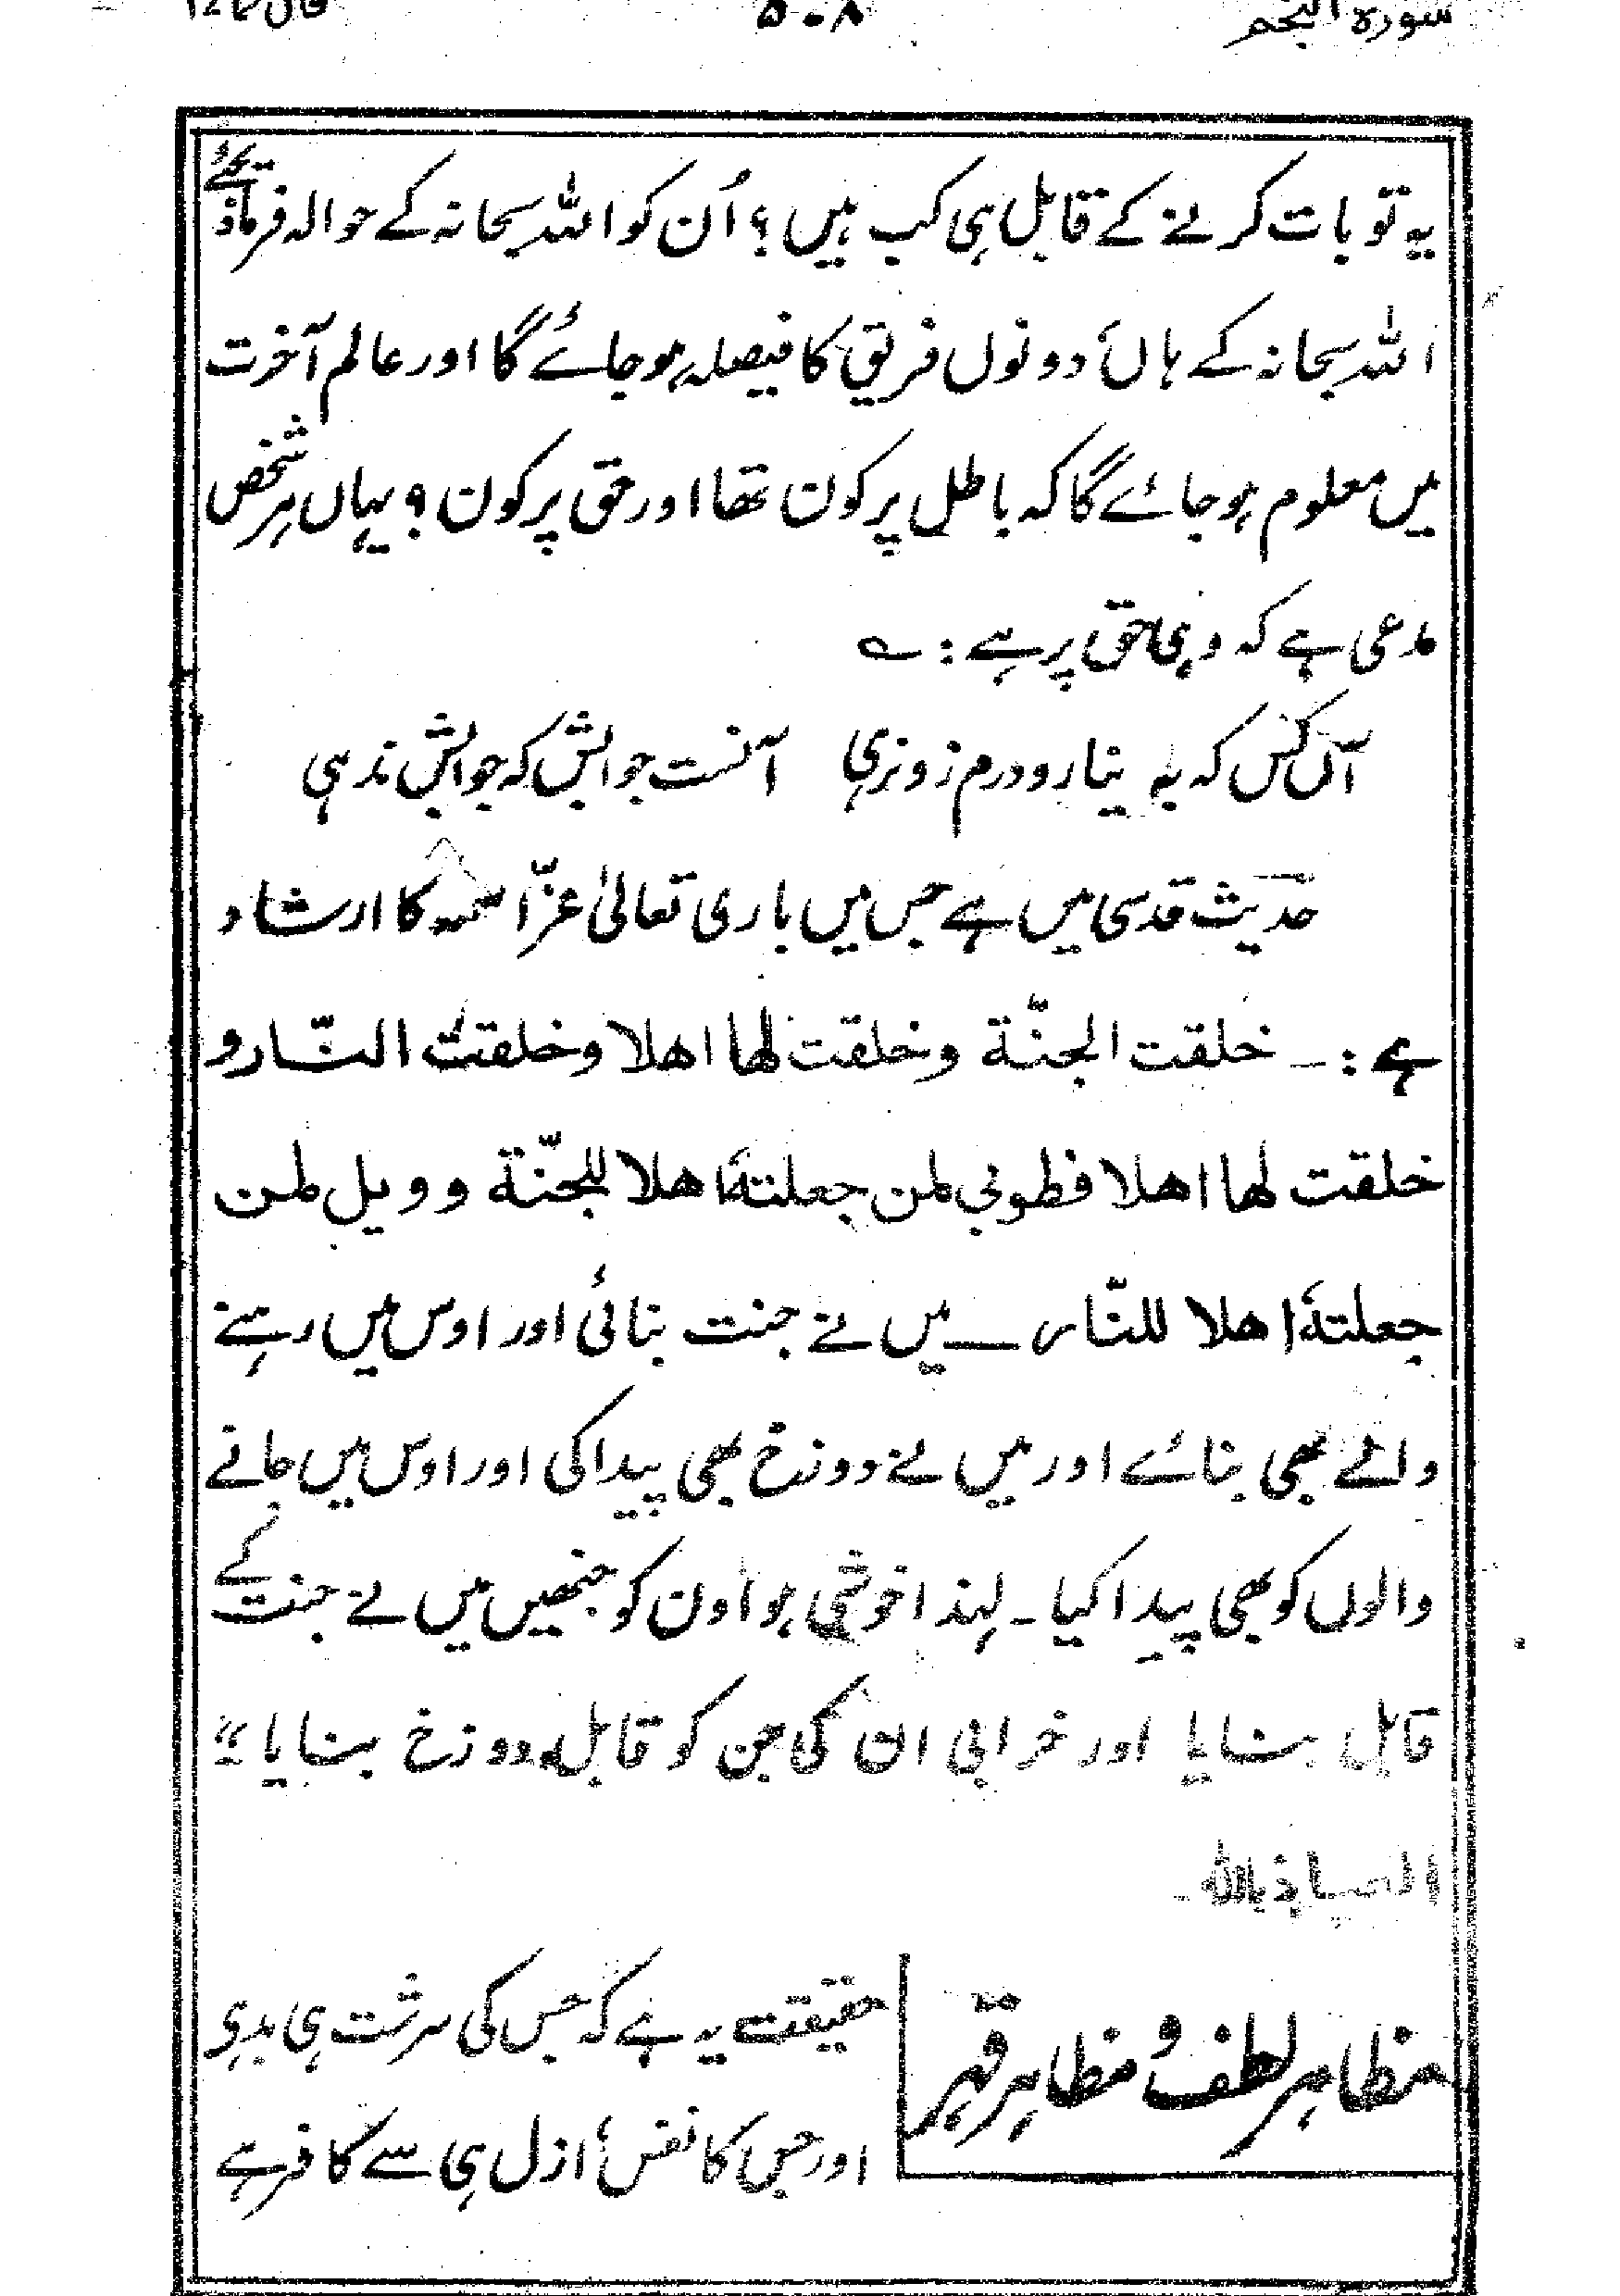 سورة النجم ۵۰۸
یہ تو بات کرنے کے قابل ہی کب ہیں؟ اُن کو اللہ سبحانہ کے حوالہ فرمادیجئے
اللہ سبحانہ کے ہاں دونوں فریق کا فیصلہ ہوجائے گا اور عالم آخرت
میں معلوم ہوجائے گا کہ باطل پر کون تھا اور حق پر کون؟ یہاں ہر شخص
مدعی ہے کہ وہی حق پر ہے :ـ
آں کس کہ بہ ینار و درم زو نرہی آنست جوابش کہ جوابش ندہی
حدیث قدسی میں ہے جس میں باری تعالیٰ عزّ اسمہ کا ارشاد
ہے :ـ خلقت الجنّة وخلقت لها اهلا وخلقت النّار و
خلقت لها اهلا فطوبي لمن جعلتهٗ اهلا للجنّة وويل لمن
جعلتهٗ اهلا للنّار ــ میں نے جنت بنائی اور اوس میں رہنے
والے بھی بنائے اور میں نے دوزخ بھی پیدا کی اور اوس میں جانے
والوں کو بھی پیدا کیا ـ لہذا خوشی ہو اون کو جنھیں میں نے جنت کے
قابل بنایا اور خرابی ان کی جن کو قابل دوزخ بنایا"
العیاذ باللہ ـ
مظاہر لطف و مظاہر قہر
حقیقت یہ ہے کہ جس کی سرشت ہی بد ہو
اور جس کا نفس ازل ہی سے کافر ہے